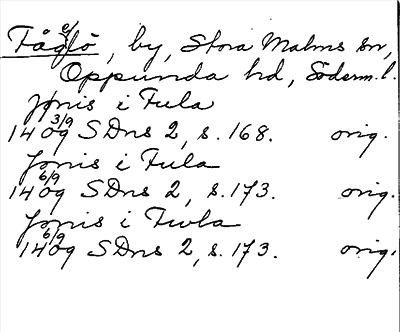 Fågl/ö, by, Stora Malms sn,
Oppunda hd, Söderm. l.
Jønis i Fula
14 3/9 09 SDns 2, s. 168. orig.
Jønis i Fula
14 6/9 09 SDns 2, s. 173. orig.
Jønis i Fwla
14 6/9 09 SDns 2, s. 173. orig.